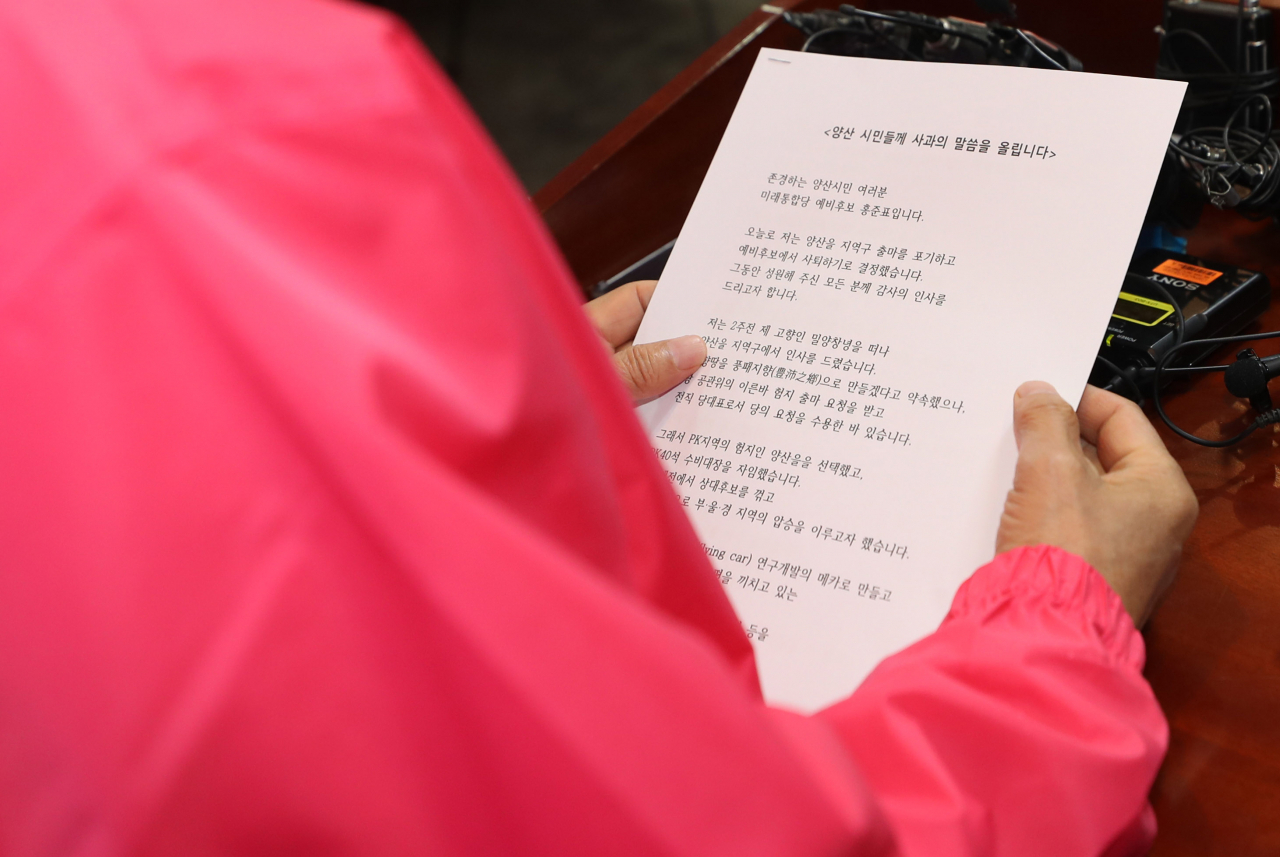 <양산 시민들께 사과의 말씀을 올립니다>
존경하는 양산시민 여러분
미래통합당 예비후보 홍준표입니다.
오늘로 저는 양산을 지역구 출마를 포기하고
예비후보에서 사퇴하기로 결정했습니다.
그동안 성원해 주신 모든 분께 감사의 인사를
드리고자 합니다.
저는 2주전 제 고향인 밀양창녕을 떠나
양산을 지역구에서 인사를 드렸습니다.
향땅을 풍패지향(豊沛之鄕)으로 만들겠다고 약속했으나,
공관위의 이른바 험지 출마 요청을 받고
전직 당대표로서 당의 요청을 수용한 바 있습니다.
그래서 PK지역의 험지인 양산을을 선택했고,
PK40석 수비대장을 자임했습니다.
에서 상대후보를 꺾고
로 부·울·경 지역의 압승을 이루고자 했습니다.
car) 연구개발의 메카로 만들고
끼치고 있는
등을
SONY